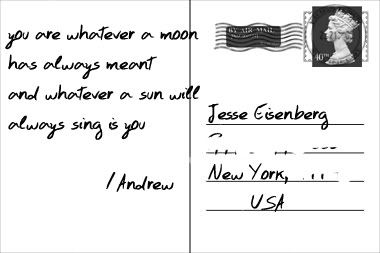 you are whatever a moon
has always meant
and whatever a sun will
always sing is you
/Andrew
BY AIR MAIL
Jesse Eisenberg
New York,
USA